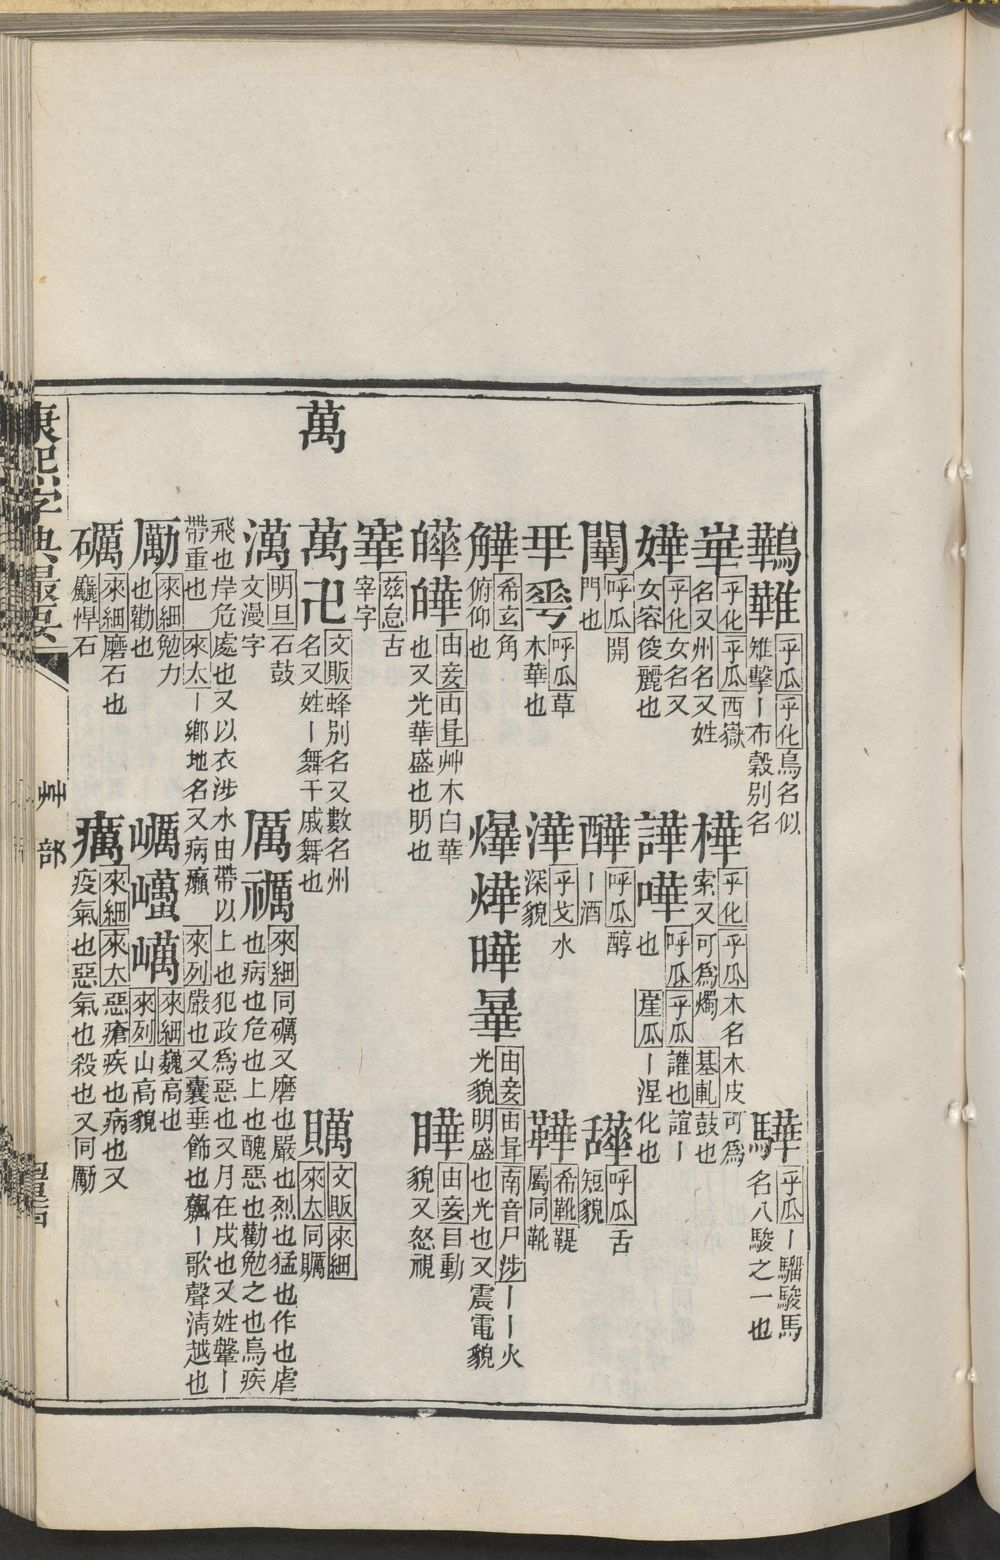 乎瓜乎化鳥名似
雉擊丨布穀別名
驊
乎瓜丨騮駿馬
名八駿之一也
崋
乎化乎瓜西嶽
名又州名又姓
樺
乎化乎瓜木名木皮可爲
索又可爲燭 基軋鼓也
嬅
乎化女名又
女容俊麗也
譁嘩
呼瓜乎瓜讙也諠丨
也 崖瓜丨涅化也
呼瓜開
門也
呼瓜醇
丨酒
呼瓜舌
短貌
呼瓜草
木華也
澕
乎戈水
深貌
鞾
希靴鞮
屬同靴
希玄角
俯仰也
爗燁曄曅
由妾由咠南音尸涉丨丨火
光貌明盛也光也又震電貌
皣
由妾由咠艸木白華
也又光華盛也明也
瞱
由妾目動
貌又怒視
茲怠古
宰字
萬
萬卍
文販蜂別名又數名州
名又姓丨舞干戚舞也
贎
文販來細
來太同
澫
明旦石鼓
文漫字
厲禲
來細同礪又磨也嚴也烈也猛也作也虐
也病也危也上也醜惡也勸勉之也鳥疾
飛也岸危處也又以衣涉水由帶以上也犯政爲惡也又月在戌也又姓鞶丨
帶重也 來太丨鄉地名又病癩 來列嚴也又囊垂飾也飄丨歌聲清越也
勵
來細勉力
也勸也
巁
來細巍高也
來列山高貌
礪
來細磨石也
悍石
癘
來細來大惡瘡疾也病也又
疫氣也惡氣也殺也又同勵
康熙字典最要
部